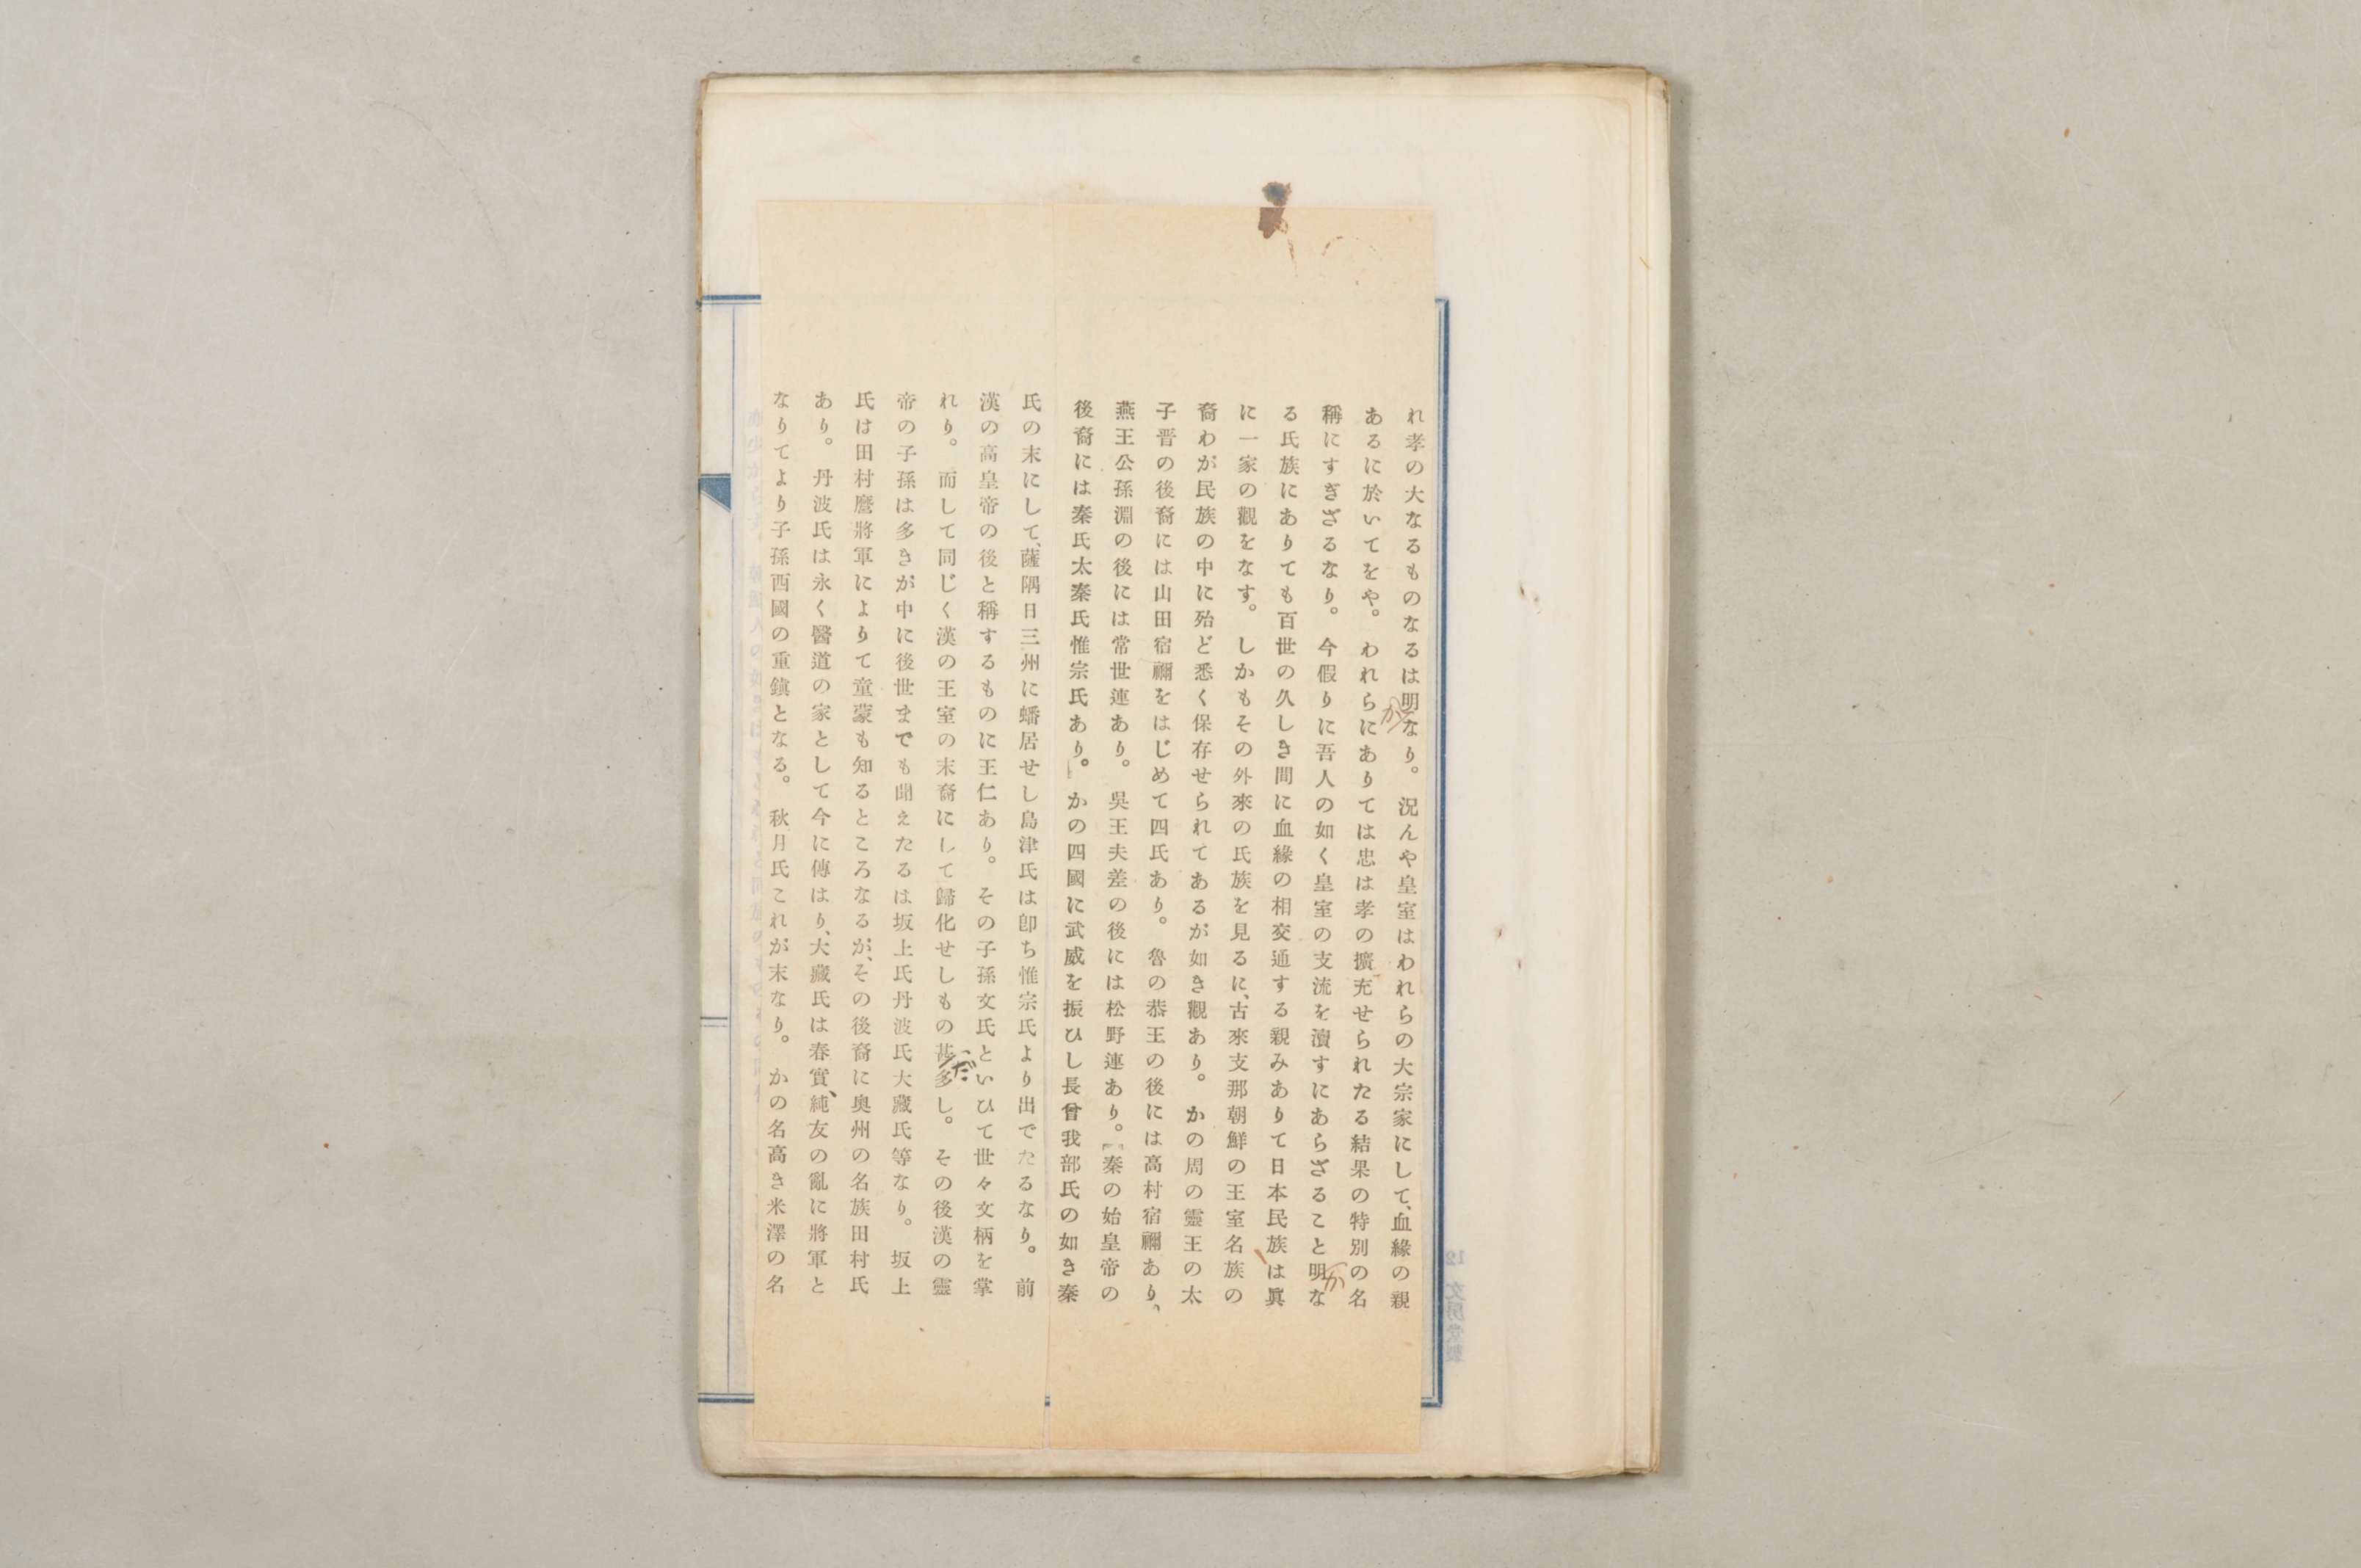 れ孝の大なるものなるは明かなり。況んや皇室はわれらの大宗家にして、血緣の親
あるに於いてをや。われらにありては忠は孝の擴充せられたる結果の特別の名
稱にすぎざるなり。今假りに吾人の如く皇室の支流を瀆すにあらざること明かな
る氏族にありても百世の久しき間に血緣の相交通する親みありて日本民族は眞
に一家の觀をなす。しかもその外來の氏族を見るに、古來支那朝鮮の王室名族の
裔わが民族の中に殆ど悉く保存せられてあるが如き觀あり。かの周の靈王の太
子晋の後裔には山田宿禰をはじめて四氏あり。魯の恭王の後には高村宿禰あり、
燕王公孫淵の後には常世連あり。吳王夫差の後には松野連あり。『秦の始皇帝の
後裔には秦氏太秦氏惟宗氏あり。かの四國に武威を振ひし長曾我部氏の如き秦
氏の末にして、薩隅日三州に蟠居せし島津氏は卽ち惟宗氏より出でたるなり。前
漢の高皇帝の後と稱するものに王仁あり。その子孫文氏といひて世々文柄を掌
れり。而して同じく漢の王室の末裔にして歸化せしもの甚だ多し。その後漢の靈
帝の子孫は多きが中に後世までも聞えたるは坂上氏丹波氏大藏氏等なり。坂上
氏は田村麿將軍によりて童蒙も知るところなるが、その後裔に奥州の名族田村氏
あり。丹波氏は永く醫道の家として今に傳はり、大藏氏は春實、純友の亂に將軍と
なりてより子孫西國の重鎭となる。秋月氏これが末なり。かの名高き米澤の名
12 文房堂製